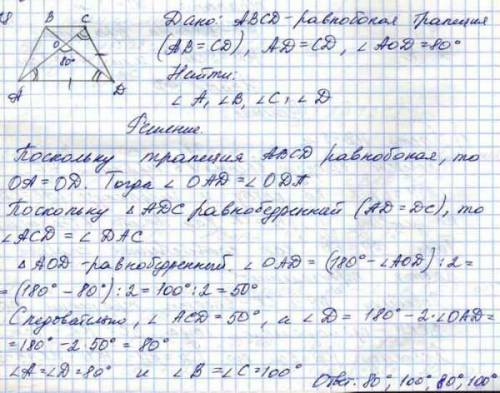 B C
Дано: ABCD - равнобокая трапеция
O
80°
(AB = CD), AD = CD, ∠ AOD = 80°
A D
Найти:
∠ A, ∠ B, ∠ C, ∠ D
Решение.
Поскольку трапеция ABCD равнобокая, то
OA = OD. Тогда ∠ OAD = ∠ ODA
Поскольку △ ADC равнобедренный (AD = DC), то
∠ ACD = ∠ DAC
△ AOD - равнобедренный. ∠ OAD = (180° - ∠AOD) : 2 =
= (180° - 80°) : 2 = 100° : 2 = 50°
Следовательно, ∠ ACD = 50°, а ∠ D = 180° - 2·∠OAD =
= 180° - 2·50° = 80°
∠A = ∠D = 80° и ∠ B = ∠ C = 100°
Ответ: 80°, 100°, 80°, 100°